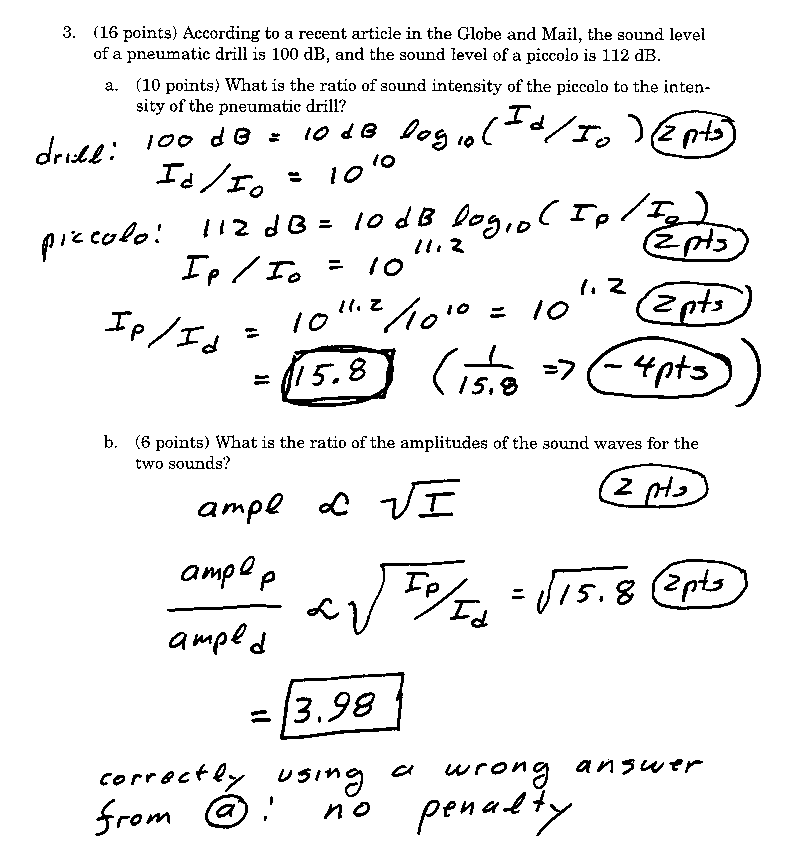 3. (16 points) According to a recent article in the Globe and Mail, the sound level
of a pneumatic drill is 100 dB, and the sound level of a piccolo is 112 dB.
a. (10 points) What is the ratio of sound intensity of the piccolo to the inten-
sity of the pneumatic drill?
drill: 100 dB = 10 dB log₁₀ (I_d/I_o) (2 pts)
I_d/I_o = 10¹⁰
piccolo: 112 dB = 10 dB log₁₀ (I_p/I_o)
(2 pts)
I_p/I_o = 10^11.2
I_p/I_d = 10^11.2/10¹⁰ = 10^1.2 (2 pts)
= 15.8 (1/15.8 => (-4pts))
b. (6 points) What is the ratio of the amplitudes of the sound waves for the
two sounds?
ampl ∝ √I (2 pts)
ampl_p/ampl_d ∝ √(I_p/I_d) = √15.8 (2pts)
= 3.98
correctly using a wrong answer
from ⓐ: no penalty